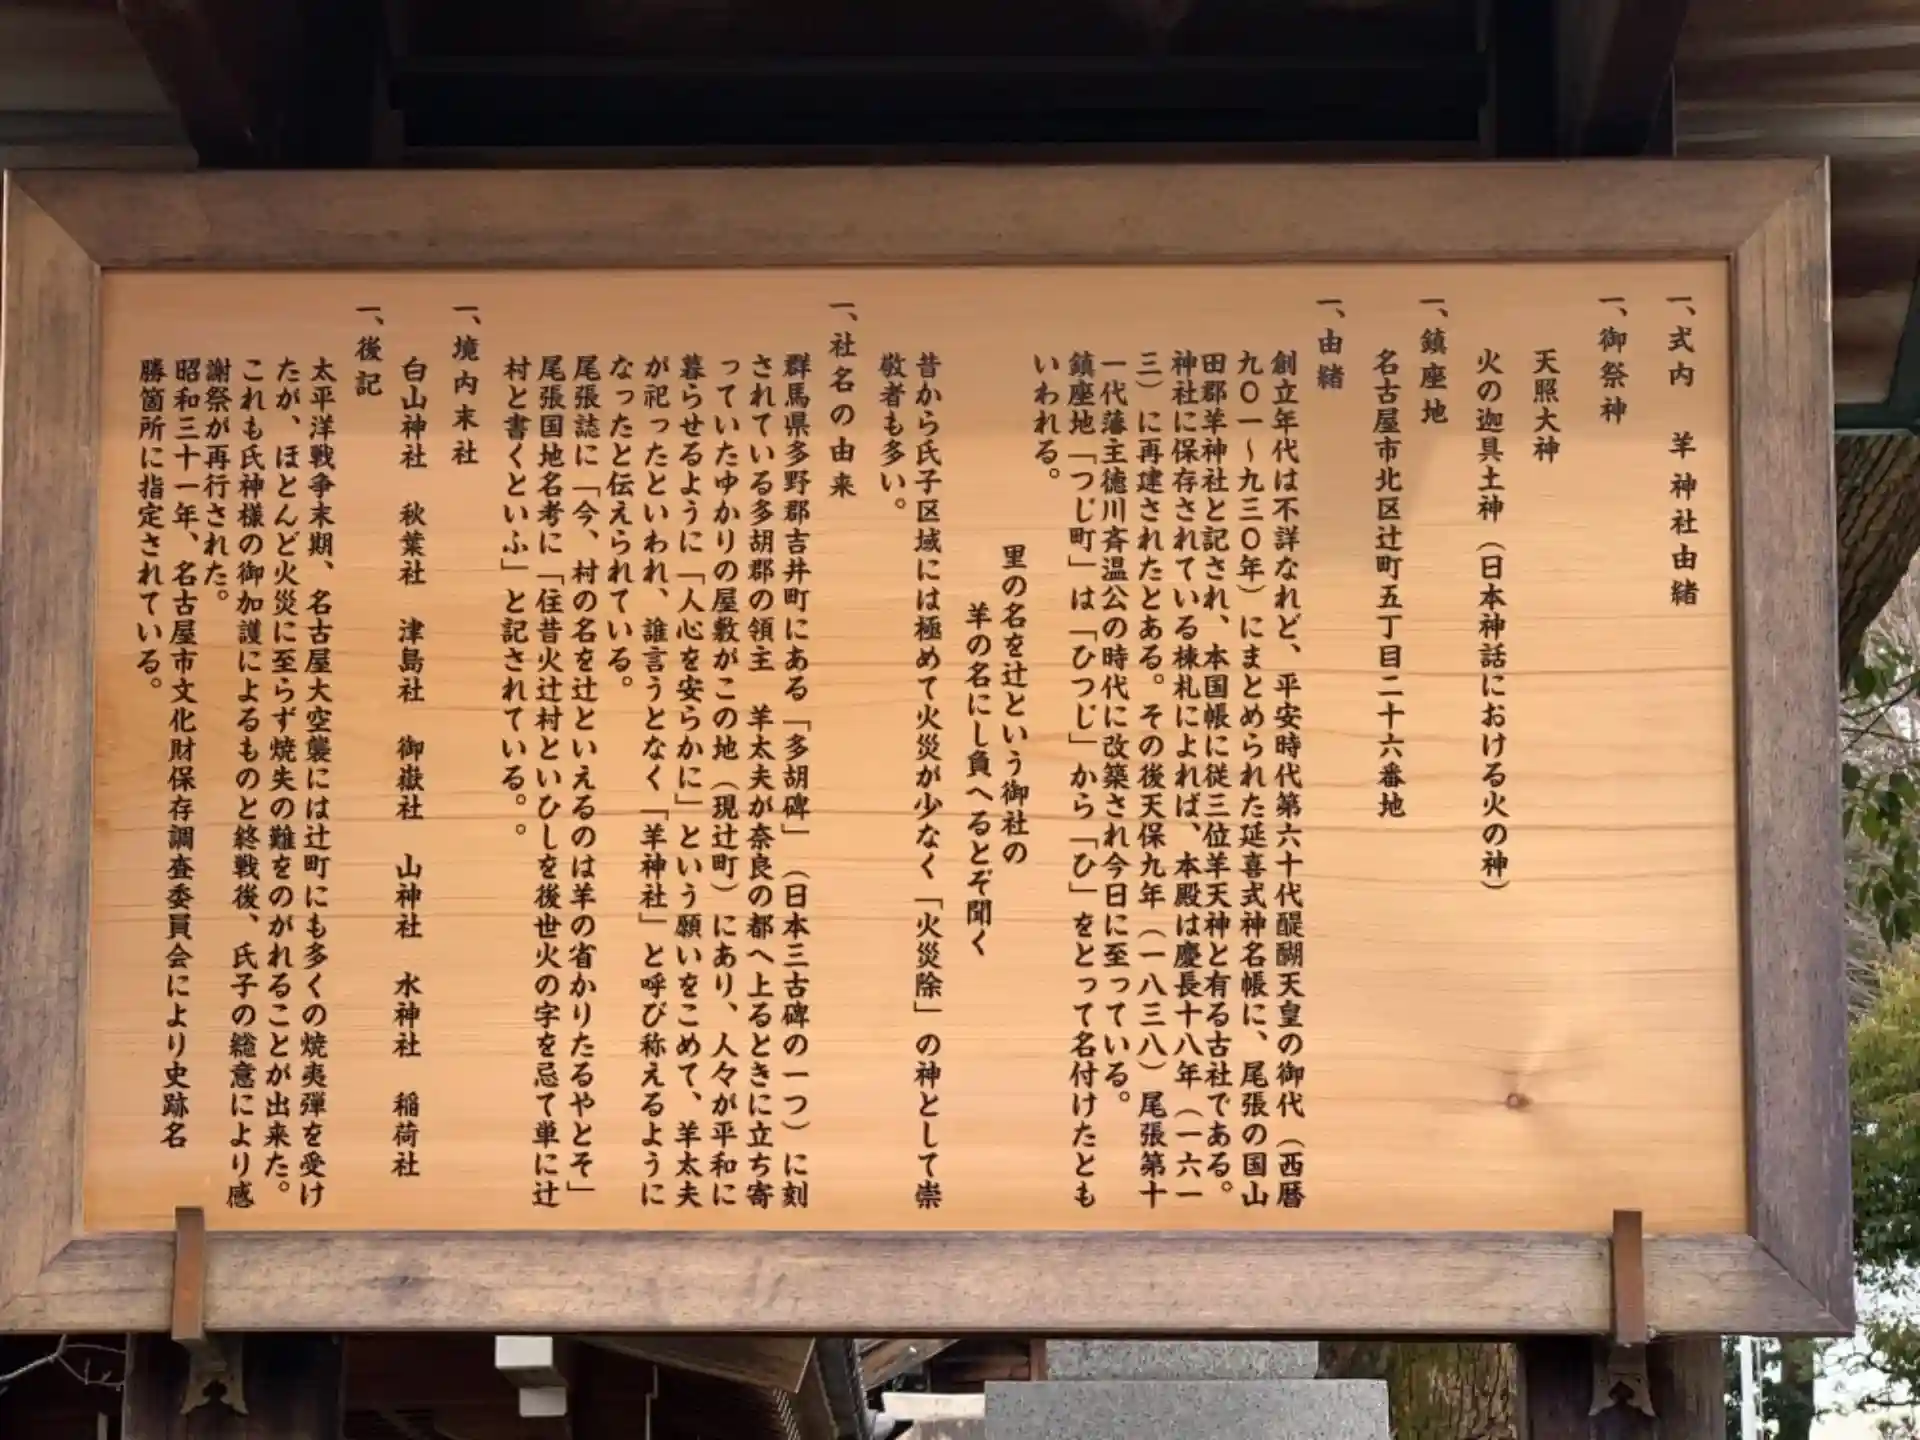 一、式内　羊神社由緒
一、御祭神
天照大神
火の迦具土神（日本神話における火の神）
一、鎮座地
名古屋市北区辻町五丁目二十六番地
一、由緒
創立年代は不詳なれど、平安時代第六十代醍醐天皇の御代（西暦
九〇一～九三〇年）にまとめられた延喜式神名帳に、尾張の国山
田郡羊神社と記され、本国帳に従三位羊天神と有る古社である。
神社に保存されている棟札によれば、本殿は慶長十八年（一六一
三）に再建されたとある。その後天保九年（一八三八）尾張第十
一代藩主徳川斉温公の時代に改築され今日に至っている。
鎮座地「つじ町」は「ひつじ」から「ひ」をとって名付けたとも
いわれる。
里の名を辻という御社の
羊の名にし負へるとぞ聞く
昔から氏子区域には極めて火災が少なく「火災除」の神として崇
敬者も多い。
一、社名の由来
群馬県多野郡吉井町にある「多胡碑」（日本三古碑の一つ）に刻
されている多胡郡の領主　羊太夫が奈良の都へ上るときに立ち寄
っていたゆかりの屋敷がこの地（現辻町）にあり、人々が平和に
暮らせるように「人心を安らかに」という願いをこめて、羊太夫
が祀ったといわれ、誰言うとなく「羊神社」と呼び称えるように
なったと伝えられている。
尾張誌に「今、村の名を辻といえるのは羊の省かりたるやとそ」
尾張国地名考に「住昔火辻村といひしを後世火の字を忌て単に辻
村と書くといふ」と記されている。。
一、境内末社
白山神社　秋葉社　津島社　御嶽社　山神社　水神社　稲荷社
一、後記
太平洋戦争末期、名古屋大空襲には辻町にも多くの焼夷弾を受け
たが、ほとんど火災に至らず焼失の難をのがれることが出来た。
これも氏神様の御加護によるものと終戦後、氏子の総意により感
謝祭が再行された。
昭和三十一年、名古屋市文化財保存調査委員会により史跡名
勝箇所に指定されている。